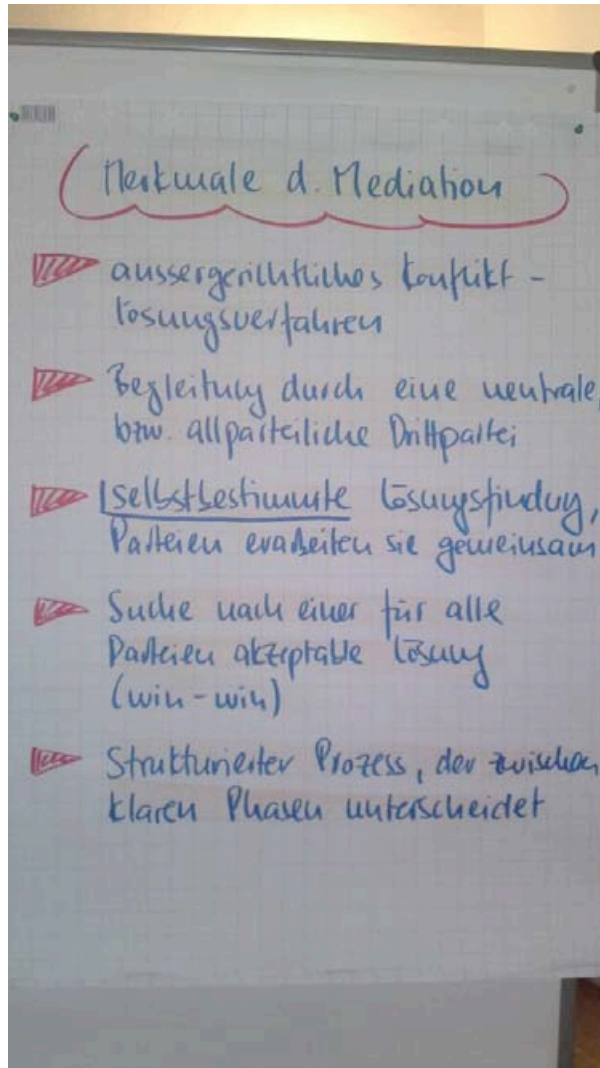 Merkmale d. Mediation
aussergerichtliches Konflikt-
lösungsverfahren
Begleitung durch eine neutrale,
bzw. allparteiliche Drittpartei
selbstbestimmte Lösungsfindung,
Parteien erarbeiten sie gemeinsam
Suche nach einer für alle
Parteien akzeptable Lösung
(win-win)
Strukturierter Prozess, der zwischen
klaren Phasen unterscheidet